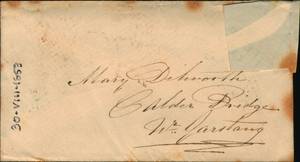 30-VIII-1853
Mary Dilworth
Calder Bridge
Nr. Garstang